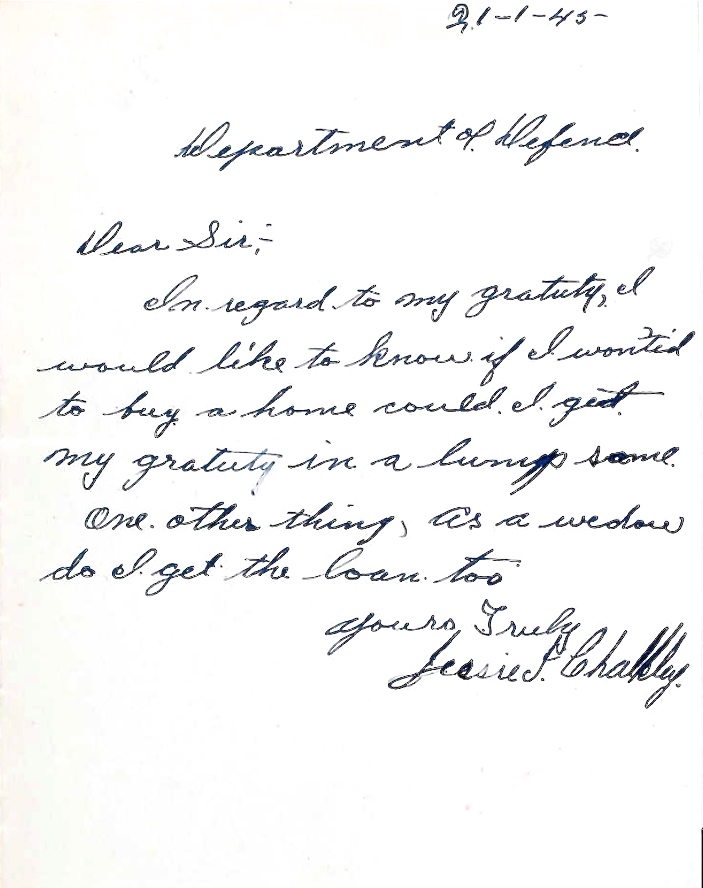 21-1-45-
Department of Defence.
Dear Sir;-
In regard to my gratuty, I
would like to know if I wontid
to buy a home could I get
my gratuty in a lump some.
One other thing, as a wedow
do I get the loan too
Yours Truly
Jessie F. Chalkley.